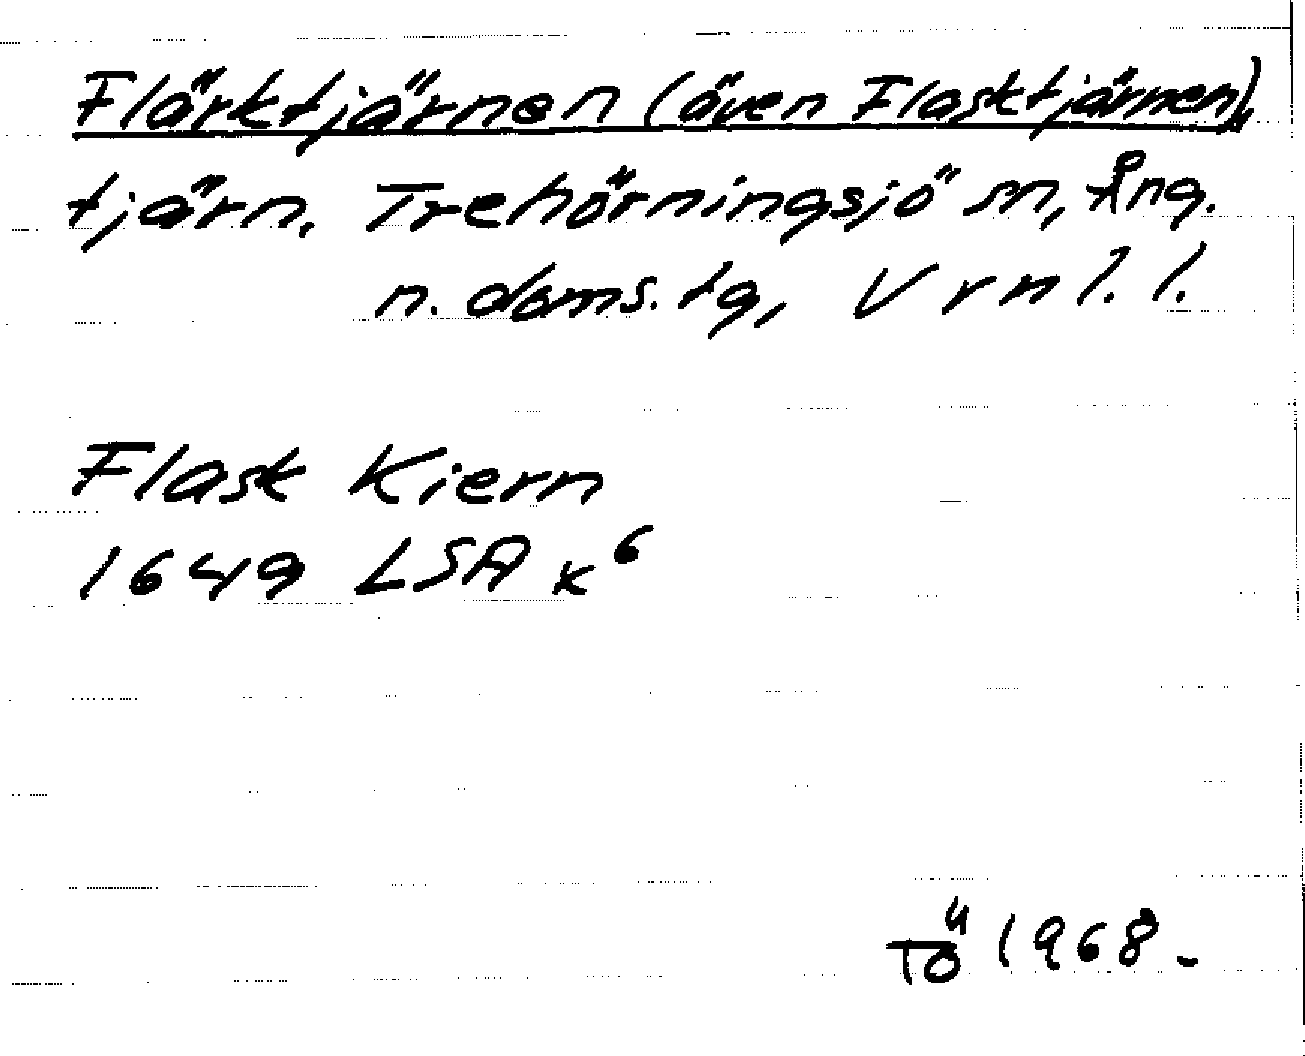 Flärktjärnen (även Flasktjärnen),
tjärn. Trehörningsjö sn, Ång.
n. doms.tg, Vrnl. l.
Flask Kiern
1649 LSA K6
TÖ 1968-